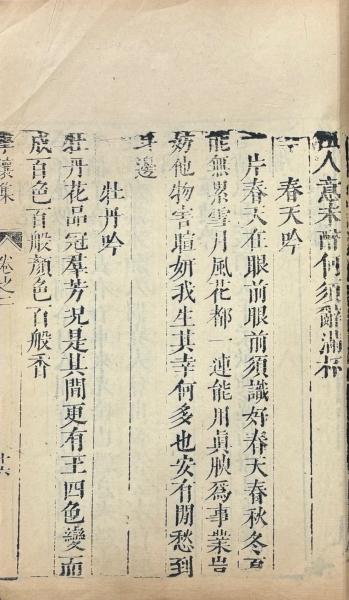 人意未醉何須辭滿杯
春天吟
片春天在眼前眼前須識好春天春秋冬夏
能無累雪月風花都一連能用眞腴爲事業豈
妨他物害暄妍我生其幸何多也安有閒愁到
耳邊
牡丹吟
牡丹花品冠羣芳況是其間更有王四色變而
成百色百般顏色百般香
擊壤集
卷之二
十六